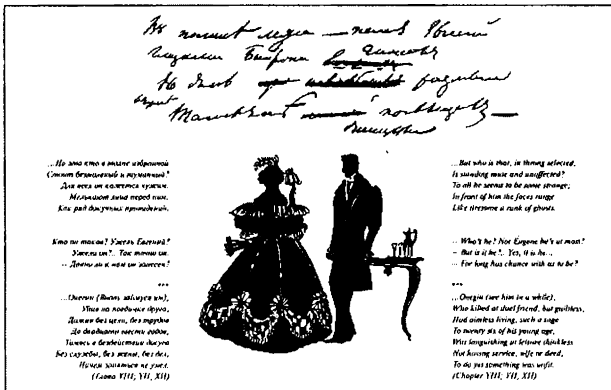 ...Но это кто в толпе избранной
Стоит безмолвный и туманный?
Для всех он кажется чужим.
Мелькают лица перед ним,
Как ряд докучных привидений.
Кто он таков? Ужель Евгений?
Ужели он?.. Так точно он.
– Давно ли к нам он занесен?
***
...Онегин (вновь займуся им),
Убив на поединке друга,
Дожив без цели, без трудов
До двадцати шести годов,
Томясь в бездействии досуга
Без службы, без жены, без дел,
Ничем заняться не умел.
(Глава VIII; VII, XII)
...But who is that, in throng selected,
Is standing mute and unaffected?
To all he seems to be some strange;
In front of him the faces range
Like tiresome a rank of ghosts.
... Who's he? Not Eugene he's at most?
– But is it he?.. Yes, it is he...
... For long has chance with us to be?
***
...Onegin (we him in a while),
Who killed at duel friend, but guiltless,
Had aimless living, such a sage
To twenty six of his young age,
Was languishing at leisure thinkless
Not having service, wife or deed,
To do yet something was unfit.
(Chapter VIII; VII, XII)